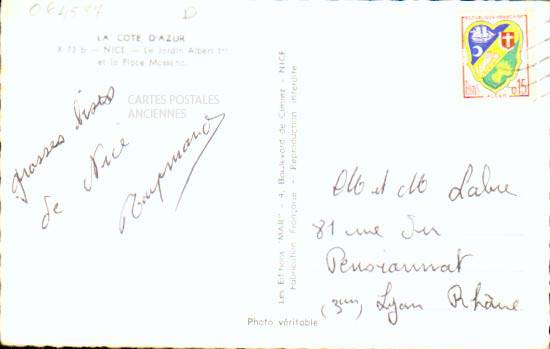 064597 D
LA COTE D'AZUR
X 73 b - NICE - Le Jardin Albert 1er
et la Place Massena.
CARTES POSTALES
ANCIENNES
grosses bises
de Nice
Raymond
Les Editions "MAR" - 4, Boulevard de Cimiez - NICE
Fabrication Française - Reproduction interdite
Photo véritable
REPUBLIQUE FRANÇAISE
0,15
M et M Labre
81 rue du
Pensionnat
(3em) Lyon Rhône